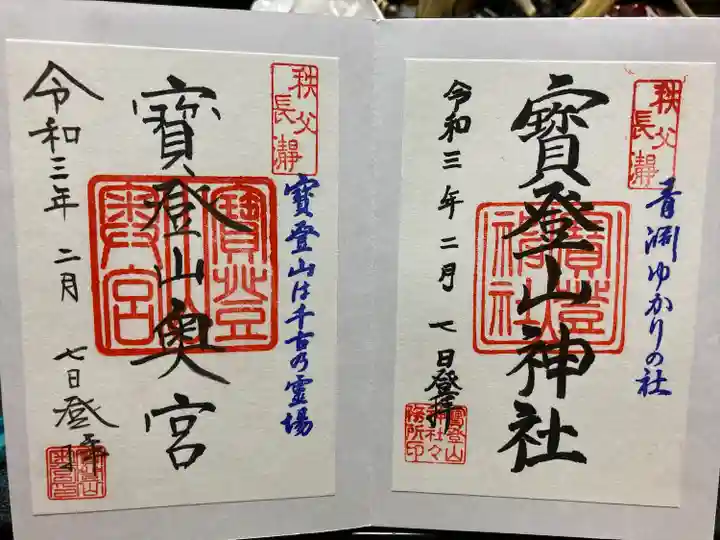 秩父
長瀞
青淵ゆかりの社
寶登山神社
寶登
山
神社
令和三年二月七日登拝
寶登山
神社々
務所印
秩父
長瀞
寶登山は千古乃霊場
寶登山奥宮
寶登
山
奥宮
令和三年二月七日登拝